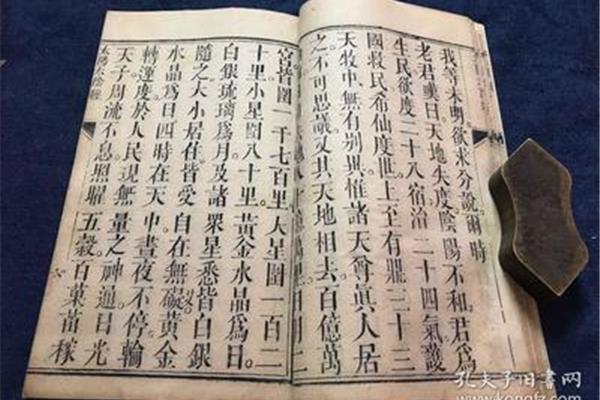 我等未明。欲求分說。爾時
老君嘆曰。天地失度陰陽不和。君爲
生民欲度二十八宿治二十四氣設
國救民布仙度世。上至有鼎三十三
天牧中。無有別與惟諸天尊眞人居
之不可思議又其天地相去百億萬
萬里日月二
宮皆圍一千七百里。大星圍一百二
十里。小星圍八十里。黃金水晶爲日。
白銀琉璃爲月。及諸衆星悉皆白銀
隨之大小居住皆受自在無礙。黃金
水晶爲日。四時在天中。晝夜不停。輪
轉運度於人民現無量之神通日光
天子周流不息。照曜五穀百菓苗稼
太陽太陰經
孔夫子旧書网
www.kongfz.com